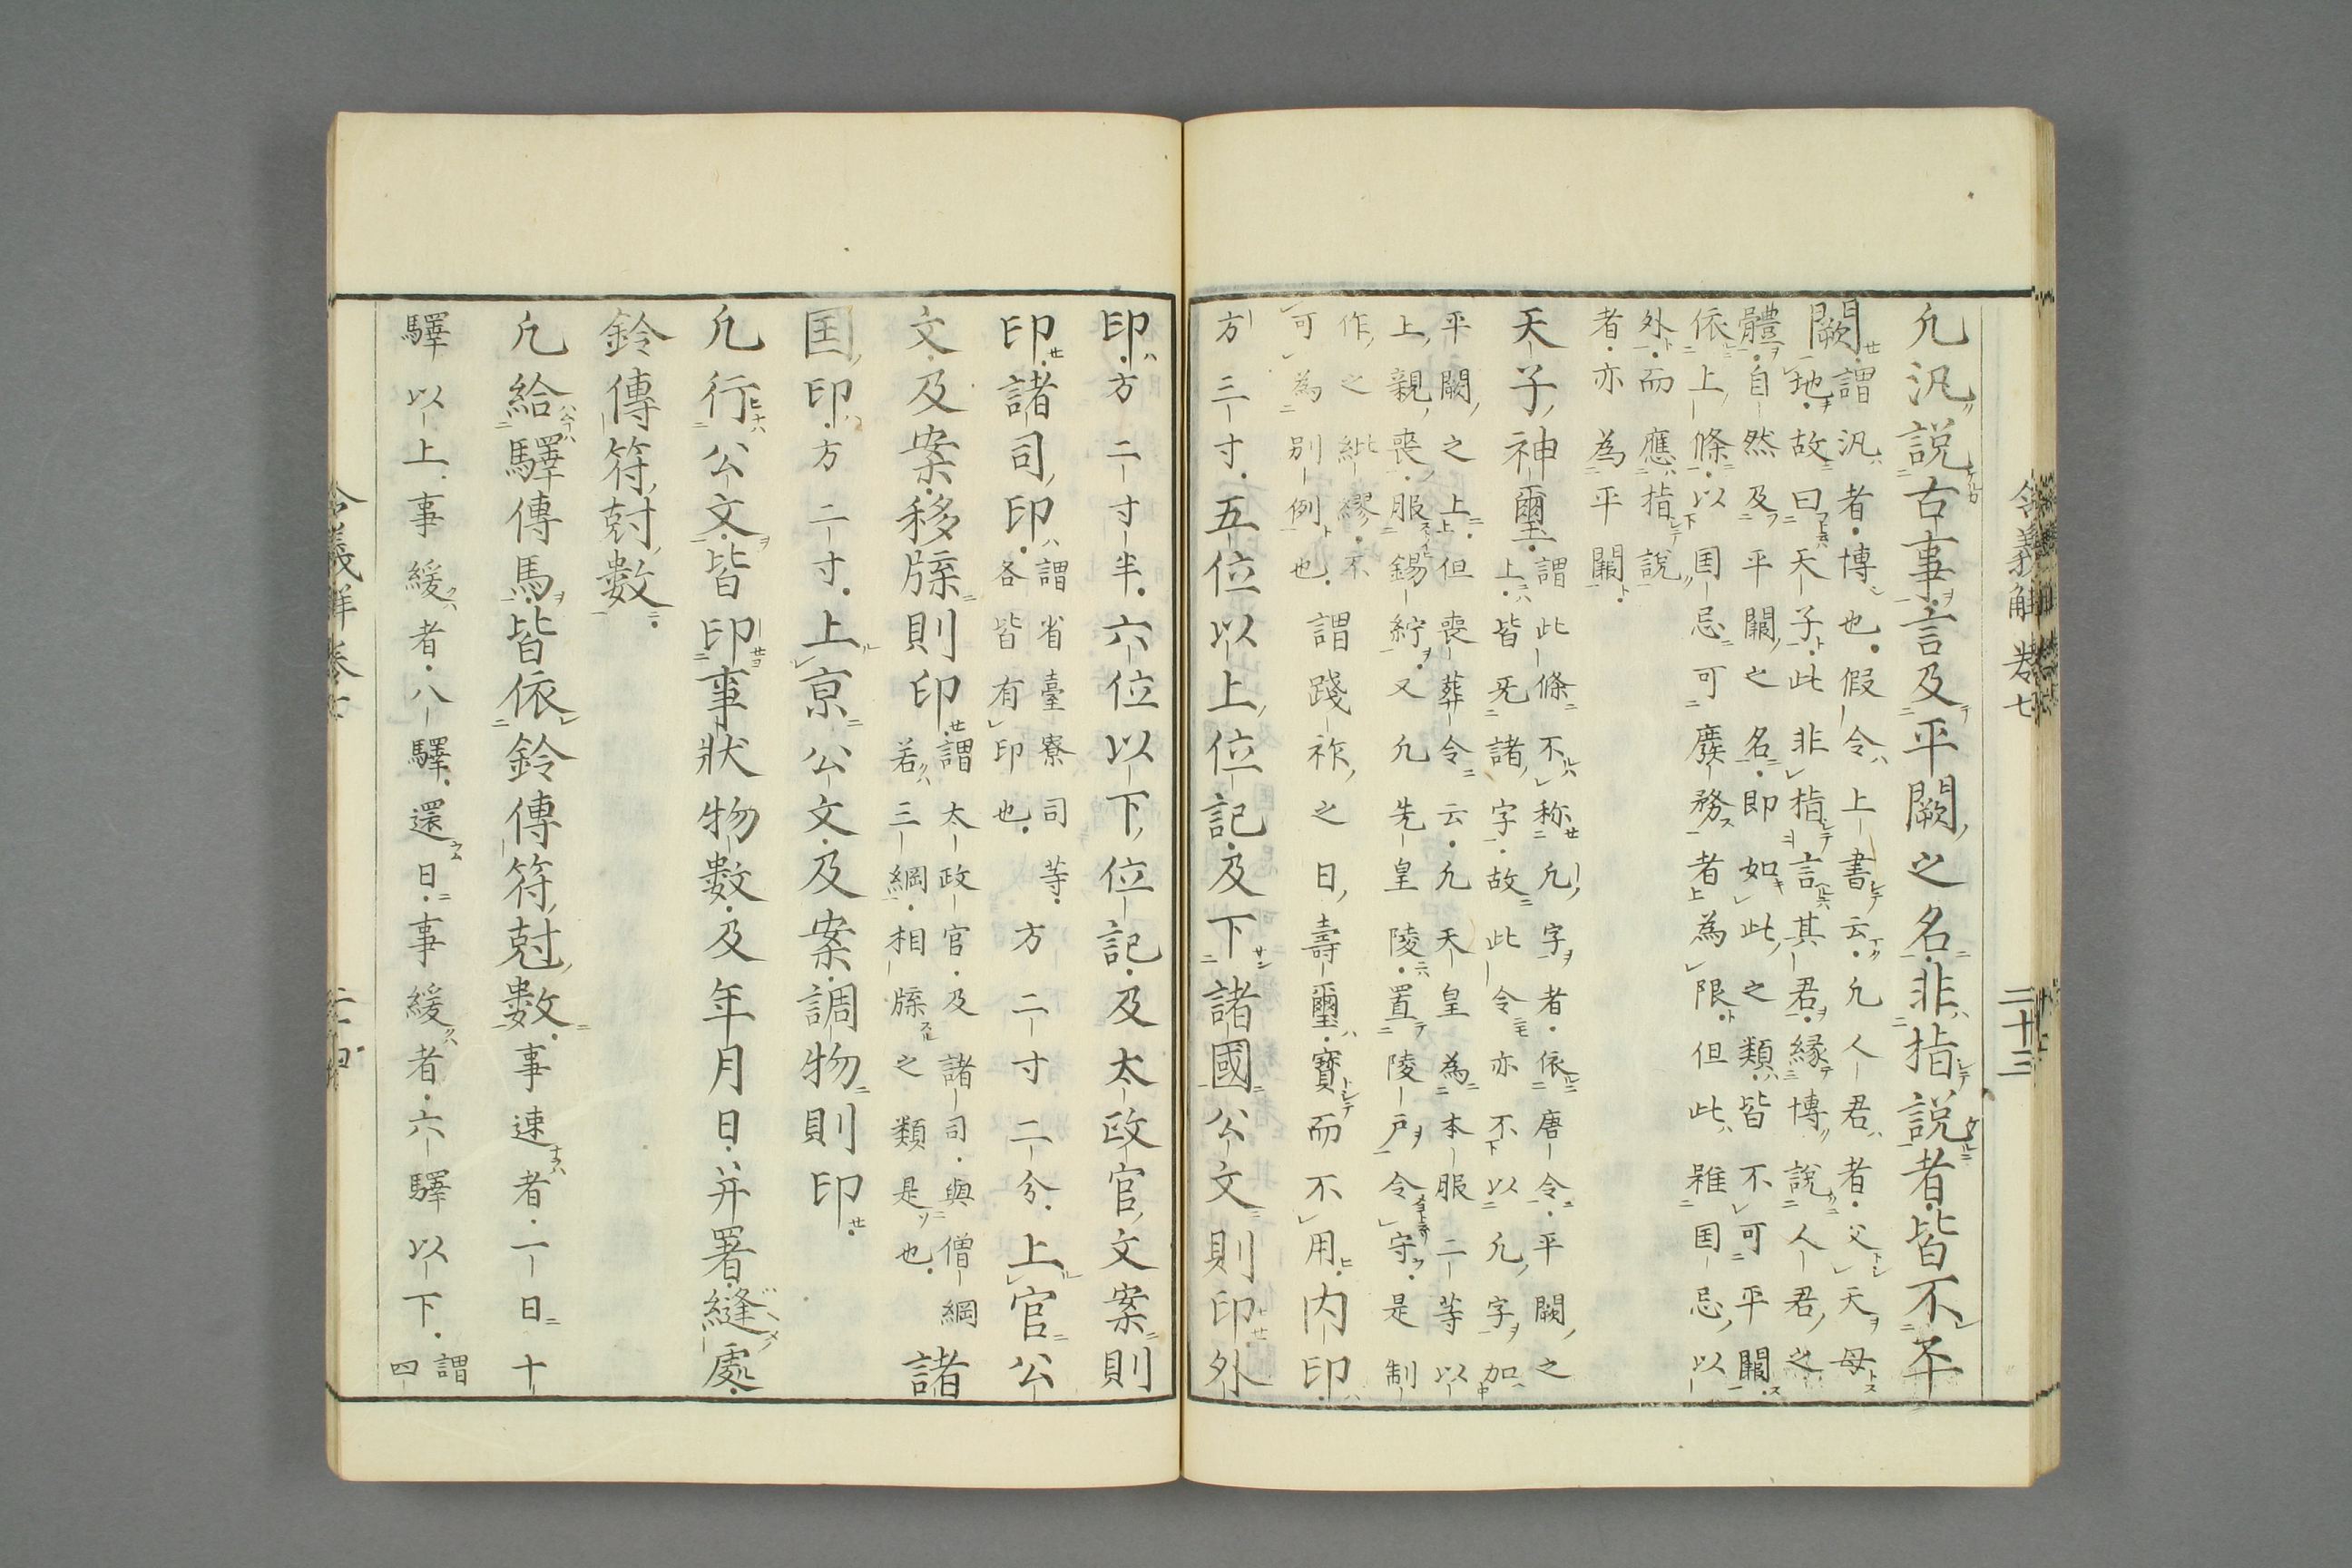 凡汎說古事言及平闕之名非指說者皆不平
闕謂汎者博也假令上書云凡人君者父天母
地故曰天子此非指言其君緣博說人君之
體自然及平闕之名即如此之類皆不可平闕
依上條以国忌可廢務者為限但此雖国忌以
外而應指說
者亦為平闕
天子神璽謂此條不称凡字者依唐令平闕之
上皆旡諸字故此令亦不以凡字加
平闕之上但喪葬令云凡天皇為本服二等以
上親喪服錫紵又凡先皇陵置陵戶令守是制
作之紕繆不
可為別例也謂踐祚之日壽璽寶而不用内印
方三寸五位以上位記及下諸國公文則印外
令義解卷七
二十三
印方二寸半六位以下位記及太政官文案則
印諸司印謂省臺寮司等
各皆有印也方二寸二分上官公
文及案移牒則印謂太政官及諸司與僧綱
若三綱相牒之類是也諸
国印方二寸上京公文及案調物則印
凡行公文皆印事狀物數及年月日并署縫處
鈴傳符尅數
凡給驛傳馬皆依鈴傳符尅數事速者一日十
驛以上事緩者八驛還日事緩者六驛以下謂
四